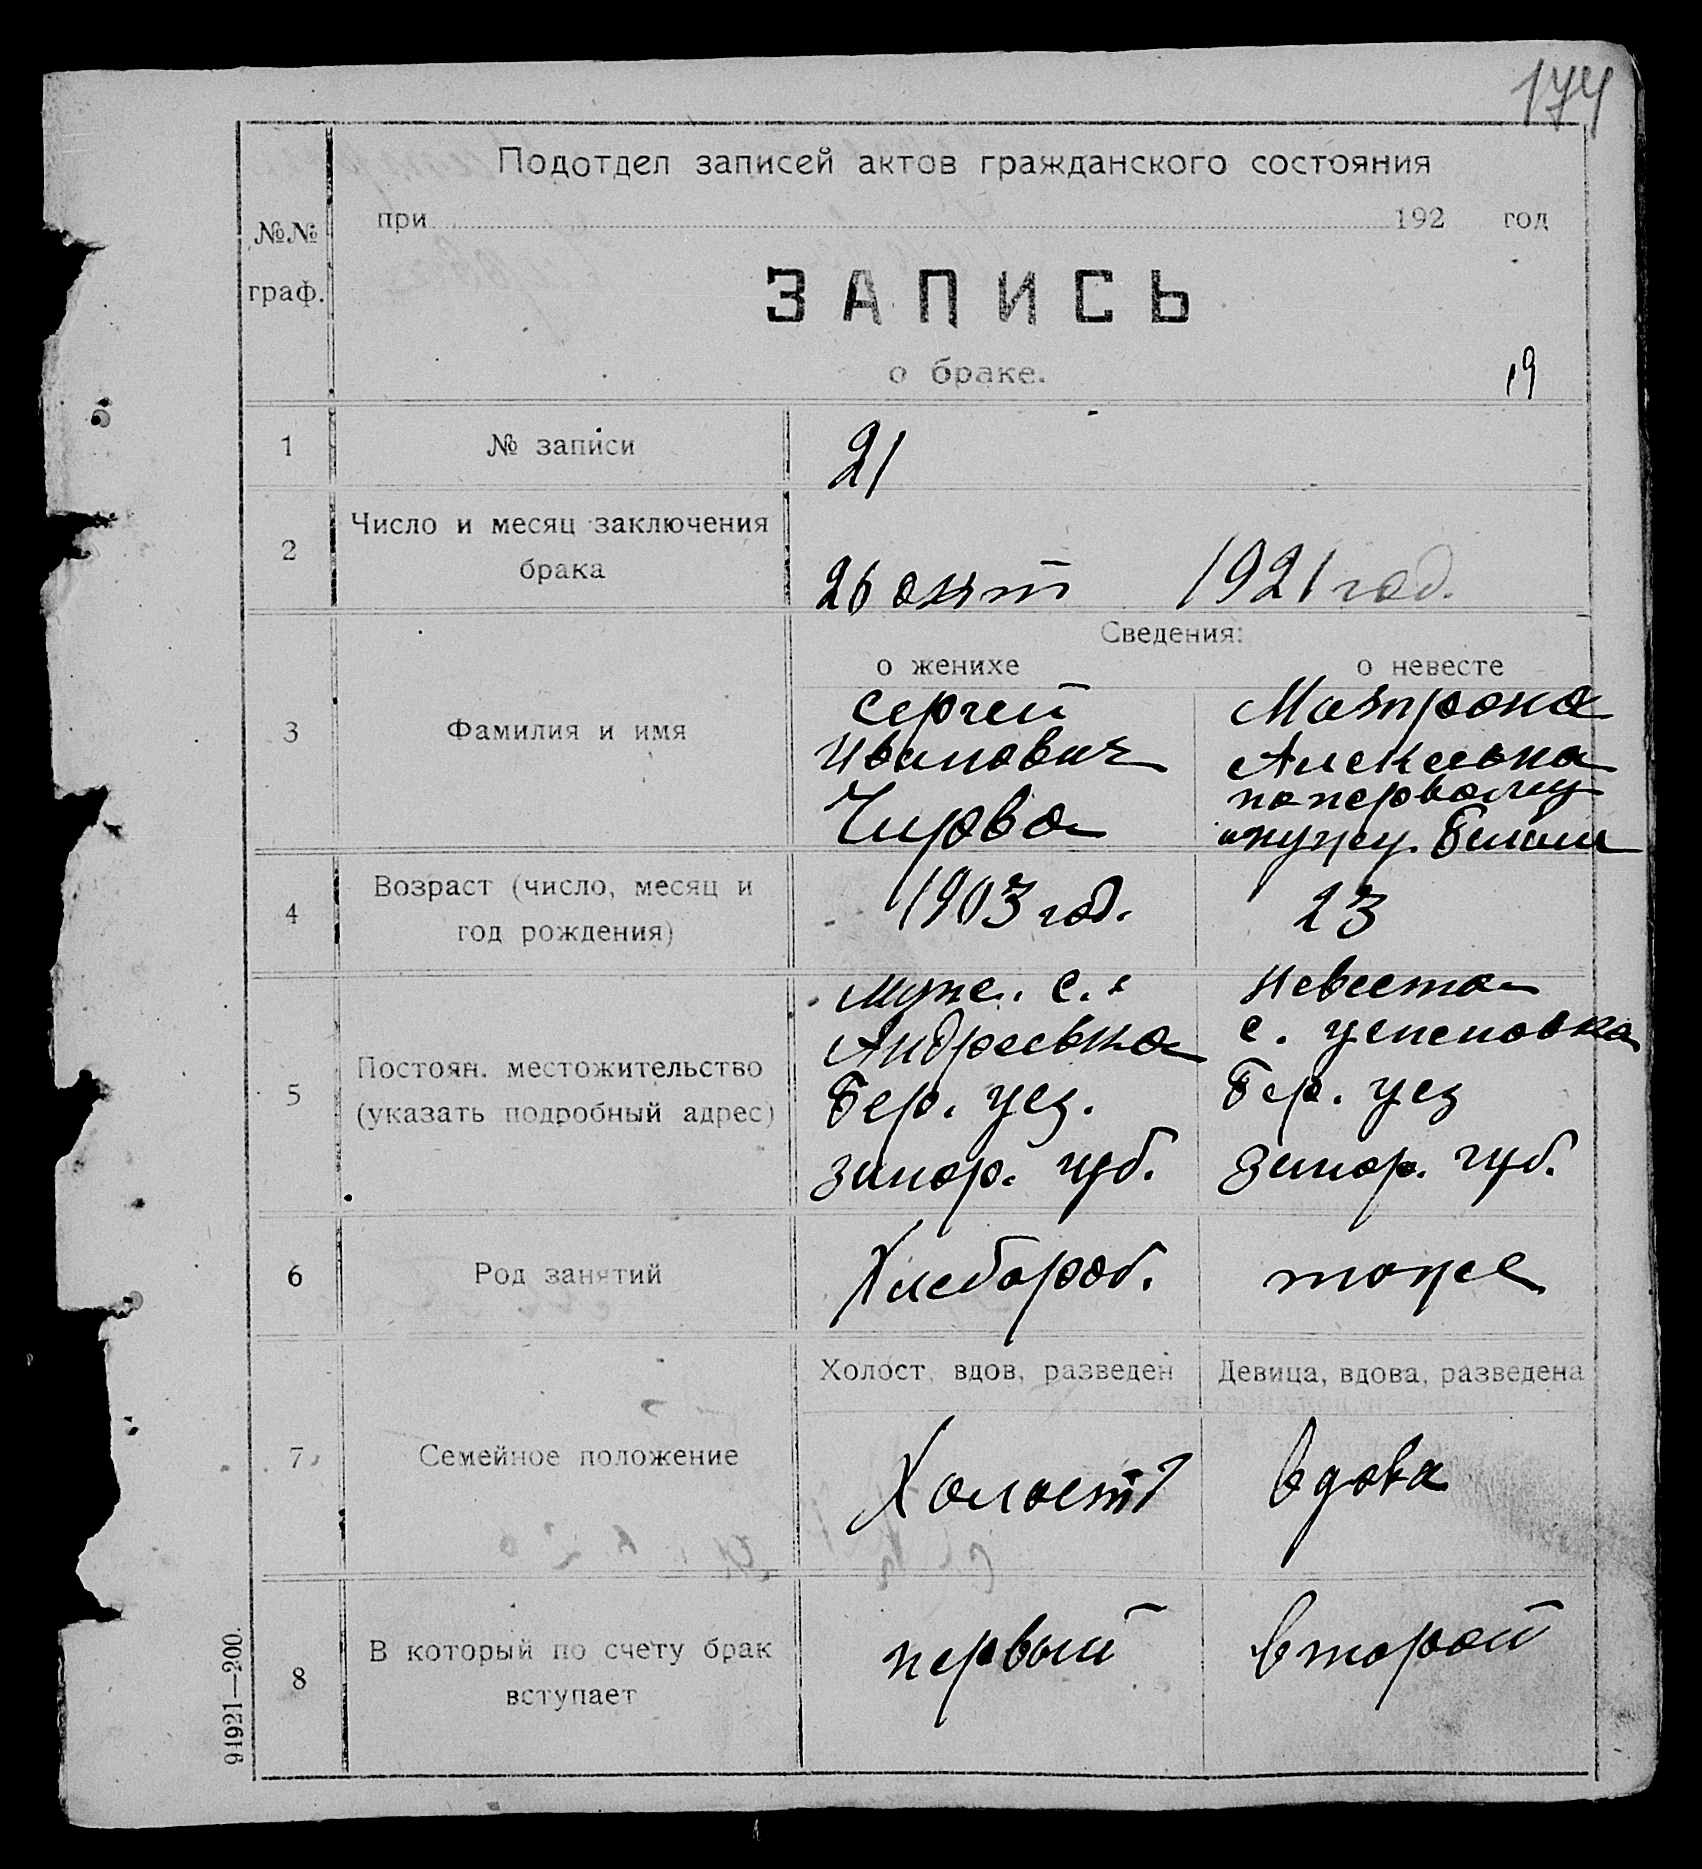 174
Подотдел записей актов гражданского состояния
№№ граф.
при 192 год
ЗАПИСЬ
о браке.
19
1 № записи 21
2 Число и месяц заключения брака
26 окт 1921 год.
Сведения:
о женихе о невесте
3 Фамилия и имя
Сергей
Иванович
Чирва
Матрона
Алексевна
по первому
мужу
4 Возраст (число, месяц и год рождения)
1903 год.
23
5 Постоян. местожительство (указать подробный адрес)
муже. с.
Андреевка
Бер. уез.
запор. губ.
Невеста
с. успеновка
Бер. уез
запор. губ.
6 Род занятий
Хлебороб.
тоже
7 Семейное положение
Холост, вдов, разведен
Девица, вдова, разведена
Холостъ
вдова
8 В который по счету брак вступает
первый
второй
91921—200.